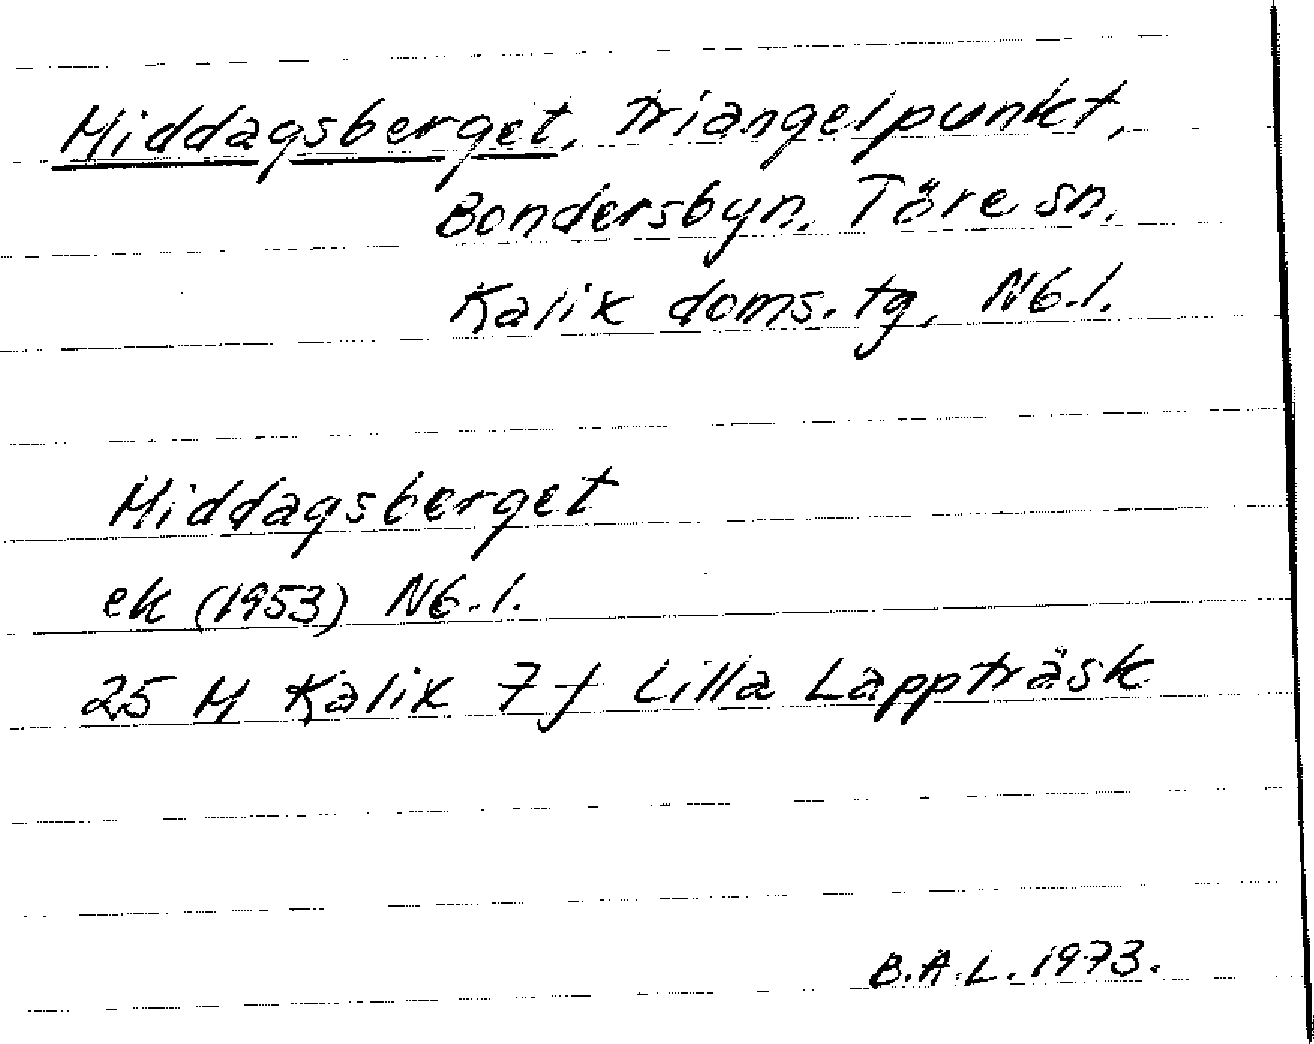 Middagsberget, triangelpunkt,
Bondersbyn, Töre sn,
Kalix doms. tg, Nb.l.
Middagsberget
ek (1953) Nb.l.
25 M Kalix 7 f Lilla Lappträsk
B.A.L. 1973.